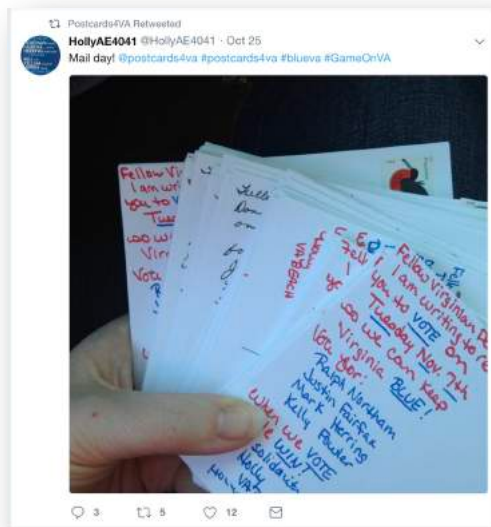 Postcards4VA Retweeted
HollyAE4041 @HollyAE4041 · Oct 25
Mail day! @postcards4va #postcards4va #blueva #GameOnVA
Fellow
I am
you to
Tues
so we
Vir
Vote
on
VA BEACH
Fellow Virginian
I am writing to
you to VOTE on
Tuesday Nov. 7th
so we can keep
Virginia BLUE!
Vote for:
Ralph Northam
Justin Fairfax
Mark Herring
Kelly Fowler
When we VOTE
we WIN!
Solidarity
Holly
3 5 12